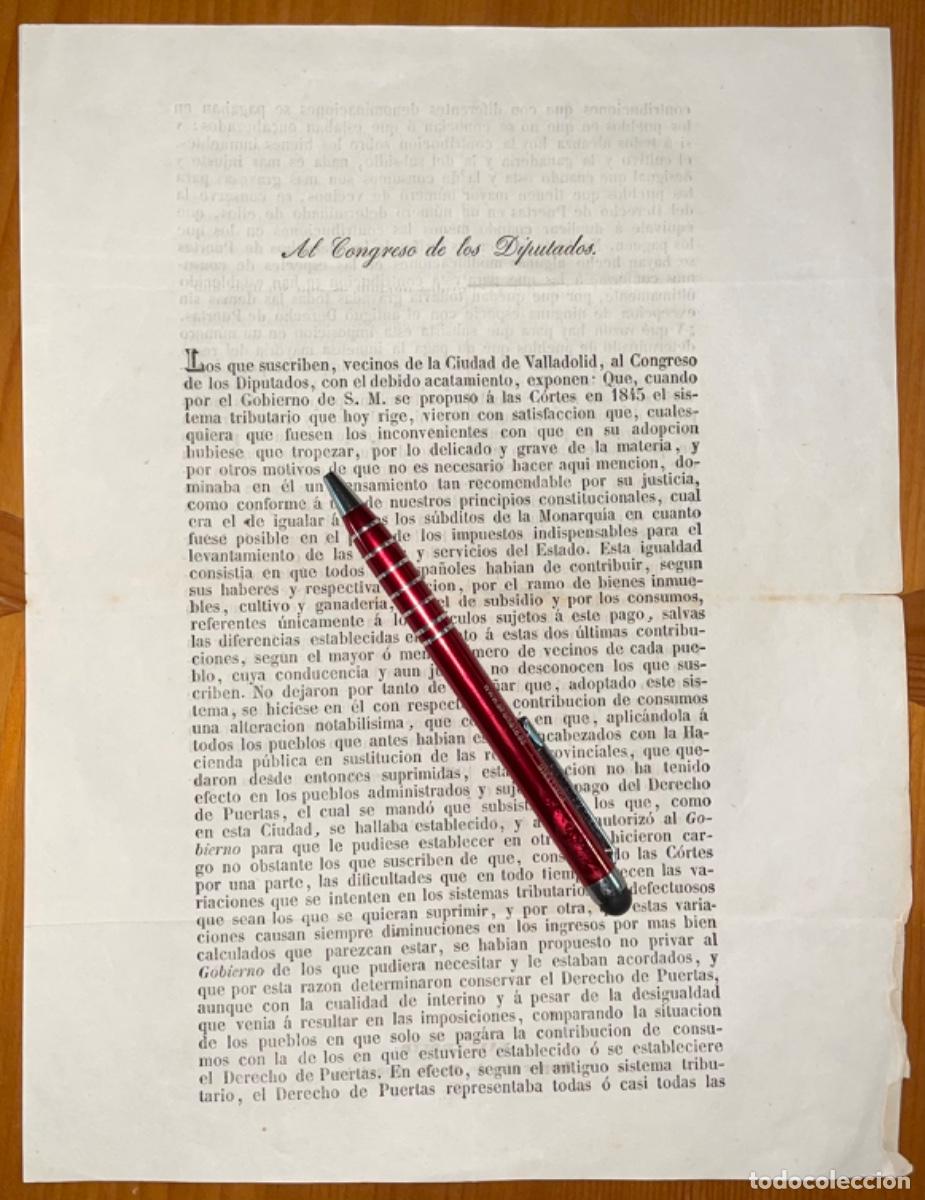 Al Congreso de los Diputados.
Los que suscriben, vecinos de la Ciudad de Valladolid, al Congreso
de los Diputados, con el debido acatamiento, exponen: Que, cuando
por el Gobierno de S. M. se propuso á las Córtes en 1845 el sis-
tema tributario que hoy rige, vieron con satisfaccion que, cuales-
quiera que fuesen los inconvenientes con que en su adopcion
hubiese que tropezar, por lo delicado y grave de la materia, y
por otros motivos de que no es necesario hacer aqui mencion, do-
minaba en él un pensamiento tan recomendable por su justicia,
como conforme á de nuestros principios constitucionales, cual
era el de igualar á los súbditos de la Monarquía en cuanto
fuese posible en el de los impuestos indispensables para el
levantamiento de las y servicios del Estado. Esta igualdad
consistia en que todos españoles habian de contribuir, segun
sus haberes y respectiva por el ramo de bienes inmue-
bles, cultivo y ganadería, de subsidio y por los consumos,
referentes únicamente á sujetos á este pago, salvas
las diferencias establecidas á estas dos últimas contribu-
ciones, segun el mayor ó número de vecinos de cada pue-
blo, cuya conducencia y aun no desconocen los que sus-
criben. No dejaron por tanto de que, adoptado este sis-
tema, se hiciese en él con contribucion de consumos
una alteracion notabilisima, que en que, aplicándola á
todos los pueblos que antes habian encabezados con la Ha-
cienda pública en sustitucion de las provinciales, que que-
daron desde entonces suprimidas, no ha tenido
efecto en los pueblos administrados y pago del Derecho
de Puertas, el cual se mandó que los que, como
en esta Ciudad, se hallaba establecido, y autorizó al Go-
bierno para que le pudiese establecer en hicieron car-
go no obstante los que suscriben de que, las Córtes
por una parte, las dificultades que en todo las va-
riaciones que se intenten en los sistemas defectuosos
que sean los que se quieran suprimir, y por otra, estas varia-
ciones causan siempre diminuciones en los ingresos por mas bien
calculados que parezcan estar, se habian propuesto no privar al
Gobierno de los que pudiera necesitar y le estaban acordados, y
que por esta razon determinaron conservar el Derecho de Puertas,
aunque con la cualidad de interino y á pesar de la desigualdad
que venia á resultar en las imposiciones, comparando la situacion
de los pueblos en que solo se pagára la contribucion de consu-
mos con la de los en que estuviere establecido ó se estableciere
el Derecho de Puertas. En efecto, segun el antiguo sistema tribu-
tario, el Derecho de Puertas representaba todas ó casi todas las
todocoleccion